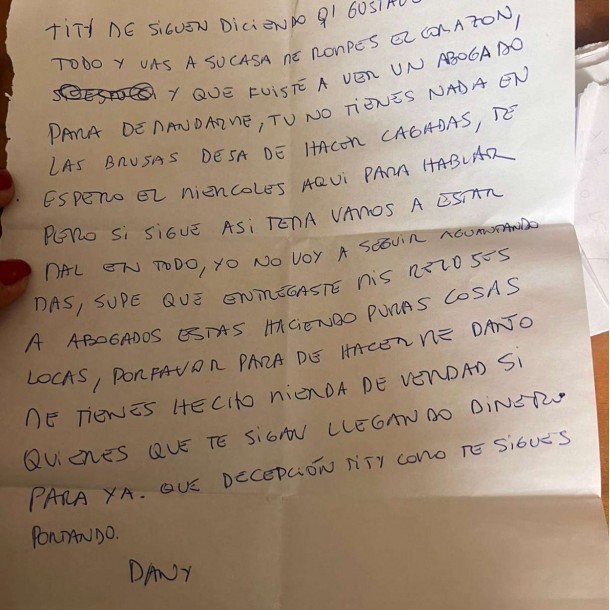 TITY ME SIGUEN DICIENDO QI GUSTAVO
TODO Y VAS A SU CASA ME ROMPES EL CORAZON,
Y QUE FUISTE A VER UN ABOGADO
PARA DEMANDARME, TU NO TIENES NADA EN
LAS BRUSAS DESA DE HACER CAGADAS, TE
ESPERO EL MIERCOLES AQUI PARA HABLAR
PERO SI SIGUE ASI TEMA VAMOS A ESTAR
MAL EN TODO, YO NO VOY A SEGUIR AGUANTANDO
MAS, SUPE QUE ENTREGASTE MIS RELOSES
A ABOGADOS ESTAS HACIENDO PURAS COSAS
LOCAS, PORFAVOR PARA DE HACERME DAÑO
ME TIENES HECHO MIERDA DE VERDAD SI
QUIERES QUE TE SIGAN LLEGANDO DINERO
PARA YA. QUE DECEPCIÓN TITY COMO TE SIGUES
PORTANDO.
DANY